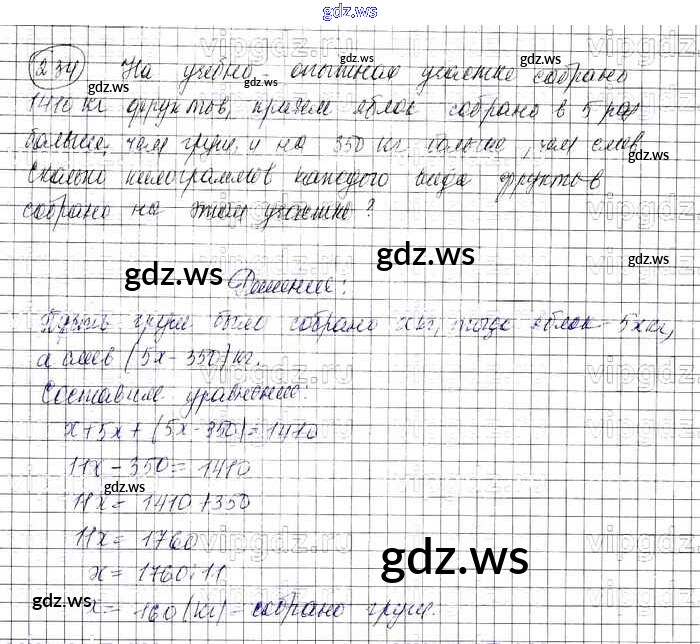 gdz.ws
234 На учебно-опытном участке собрано
1410 кг фруктов, причем яблок собрано в 5 раз
больше, чем груш и на 350 кг больше, чем слив.
Сколько килограммов каждого вида фруктов
собрано на этом участке?
Решение:
Пусть груш было собрано x кг, тогда яблок - 5x кг,
а слив (5x - 350) кг.
Составим уравнение:
x + 5x + (5x - 350) = 1410
11x - 350 = 1410
11x = 1410 + 350
11x = 1760
x = 1760:11
x = 160 (кг) - собрано груш.
gdz.ws
gdz.ws
gdz.ws
gdz.ws
gdz.ws
gdz.ws
gdz.ws
gdz.ws
gdz.ws
vipgdz.ru